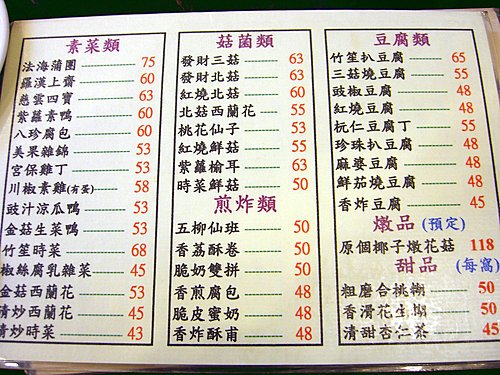 素菜類
法海蒲團 75
羅漢上齋 60
慈雲四寶 63
紫蘿素鴨 60
八珍腐包 60
美果雜錦 53
宮保雞丁 53
川椒素雞(有蛋) 58
豉汁涼瓜鴨 53
金菇生菜鴨 53
竹笙時菜 68
椒絲腐乳雜菜 45
金菇西蘭花 53
清炒西蘭花 45
清炒時菜 43
菇菌類
發財三菇 63
發財北菇 63
紅燒北菇 60
北菇西蘭花 55
桃花仙子 53
紅燒鮮菇 55
紫蘿榆耳 63
時菜鮮菇 50
煎炸類
五柳仙班 50
香荔酥卷 50
脆奶雙拼 50
香煎腐包 48
脆皮蜜奶 48
香炸酥甫 48
豆腐類
竹笙扒豆腐 65
三菇燒豆腐 55
豉椒豆腐 48
紅燒豆腐 48
杬仁豆腐丁 55
珍珠扒豆腐 48
麻婆豆腐 48
鮮茄燒豆腐 48
香炸豆腐 45
燉品 (預定)
原個椰子燉花菇 118
甜品 (每窩)
粗磨合桃糊 50
香滑花生糊 50
清甜杏仁茶 45